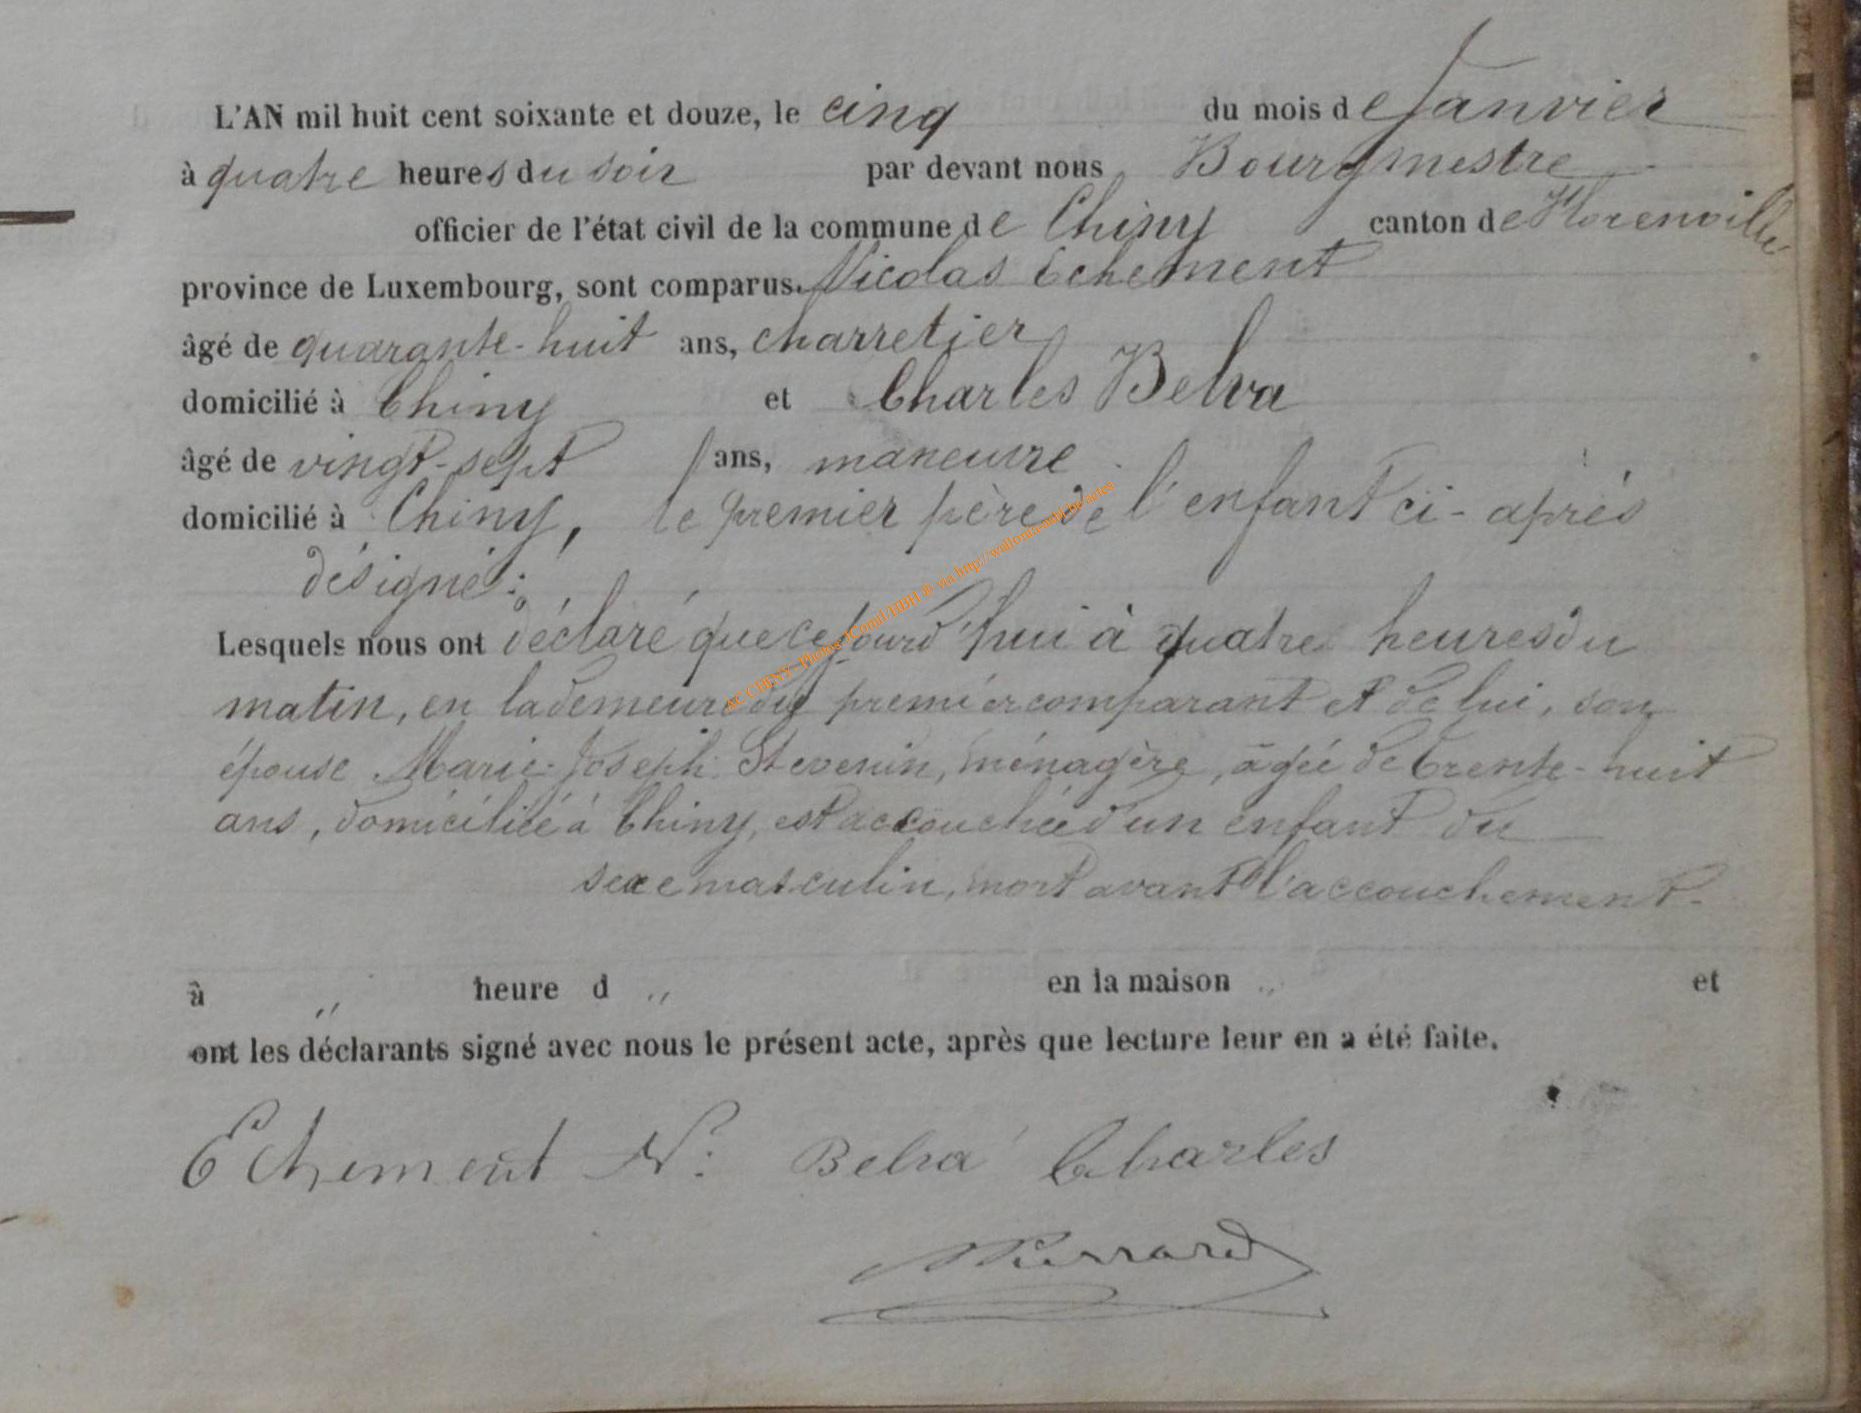 L'AN mil huit cent soixante et douze, le cinq du mois de Janvier
à quatre heures du soir par devant nous Bourgmestre
officier de l'état civil de la commune de Chiny canton de Florenville
province de Luxembourg, sont comparus Nicolas Echement
âgé de quarante-huit ans, charretier
domicilié à Chiny et Charles Belva
âgé de vingt-sept ans, maneuvre
domicilié à Chiny, le premier père de l'enfant ci-après
désigné :
Lesquels nous ont déclaré que ce jourd'hui à quatre heures du
matin, en la demeure du premier comparant et de lui, son
épouse Marie-Joseph Stevenin, ménagère, âgée de trente-huit
ans, domiciliée à Chiny, est accouchée d'un enfant du
sexe masculin, mort avant l'accouchement.
à " heure d " en la maison " et
ont les déclarants signé avec nous le présent acte, après que lecture leur en a été faite.
Echement N: Belva Charles
AC CHINY - Photos via http://